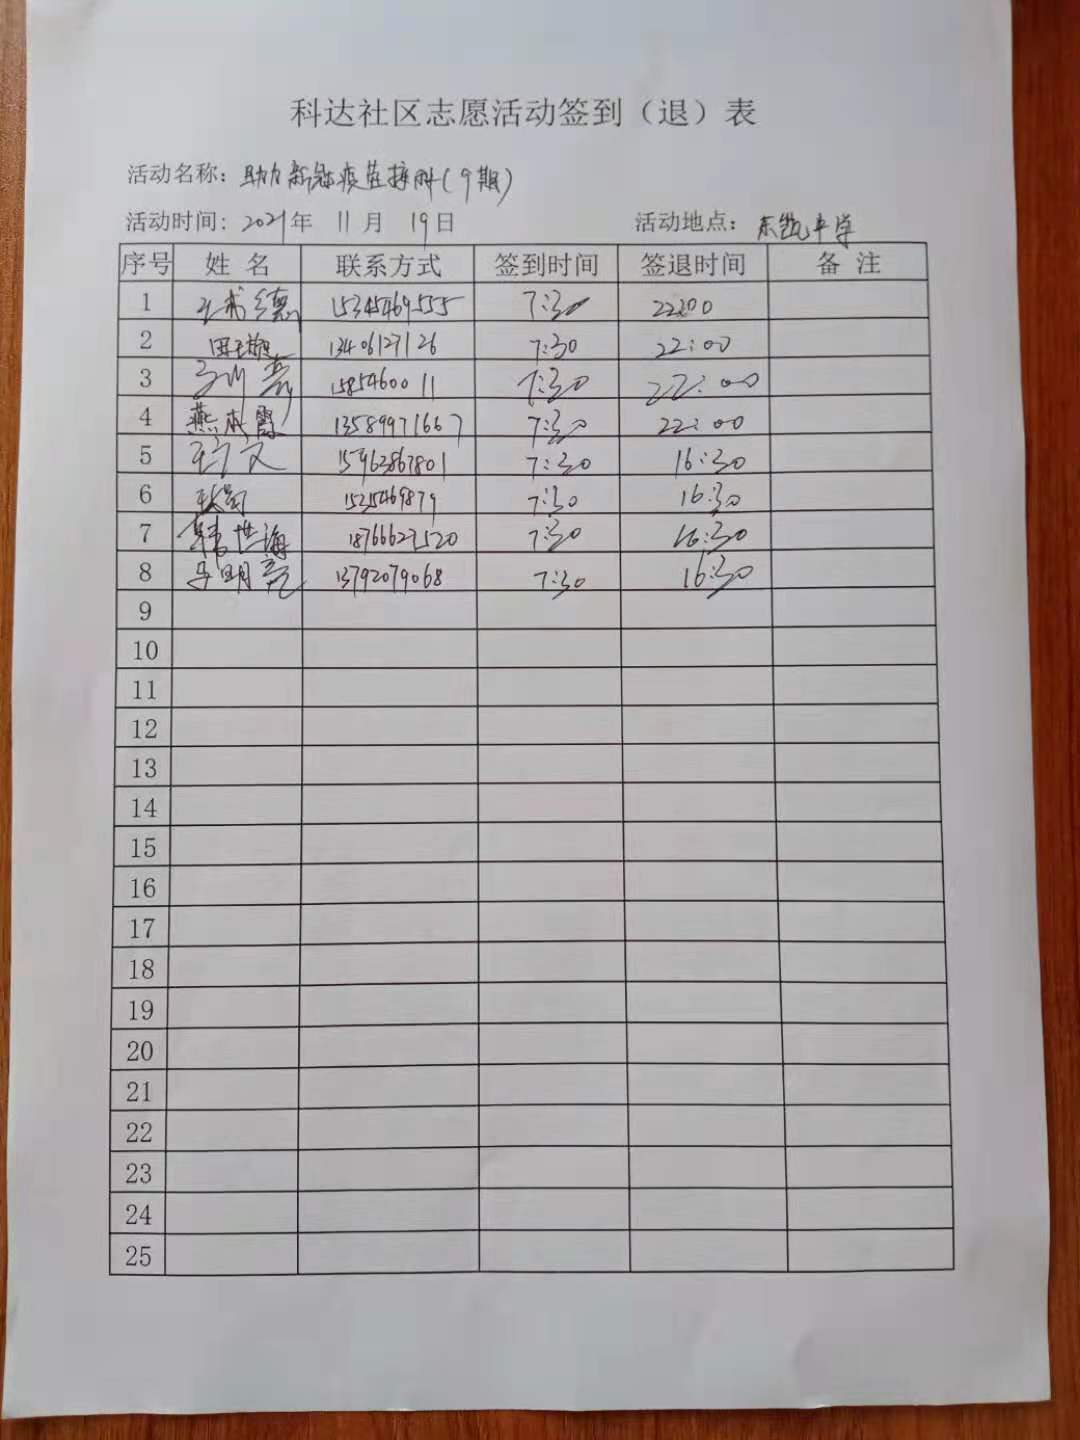 科达社区志愿活动签到（退）表
活动名称：助力新冠疫苗接种(9期)
活动时间：2021年 11月 19日 活动地点：东凯中学
序号 姓名 联系方式 签到时间 签退时间 备注
1 德 15345469555 7:30 22:00
2 13406127126 7:30 22:00
3 7:30 22:00
4 燕成霞 13589971667 7:30 22:00
5 文 15963867801 7:30 16:30
6 7:30 16:30
7 韩世海 18766627520 7:30 16:30
8 马明亮 13792079068 7:30 16:30
9
10
11
12
13
14
15
16
17
18
19
20
21
22
23
24
25